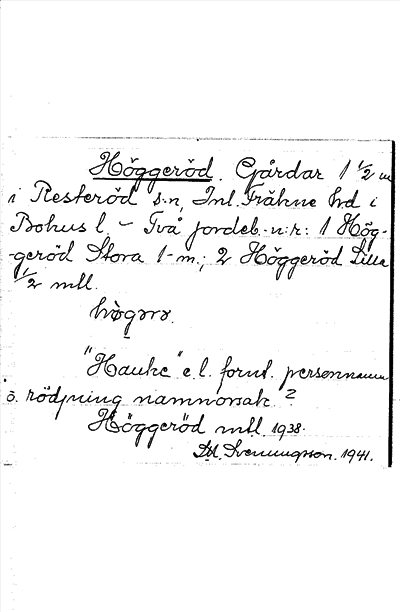 Höggeröd. Gårdar 1 1/2 m
i Resteröd s:n, Inl. Fräkne hd i
Bohus l. - Två jordeb.n:r: 1 Hög-
-geröd Stora 1 m.; 2 Höggeröd Lilla
1/2 mtl.
"Hauke" e.l. fornt. personnamn
o. rödjning namnorsak?
Höggeröd mtl. 1938.
Svenningsson. 1941.